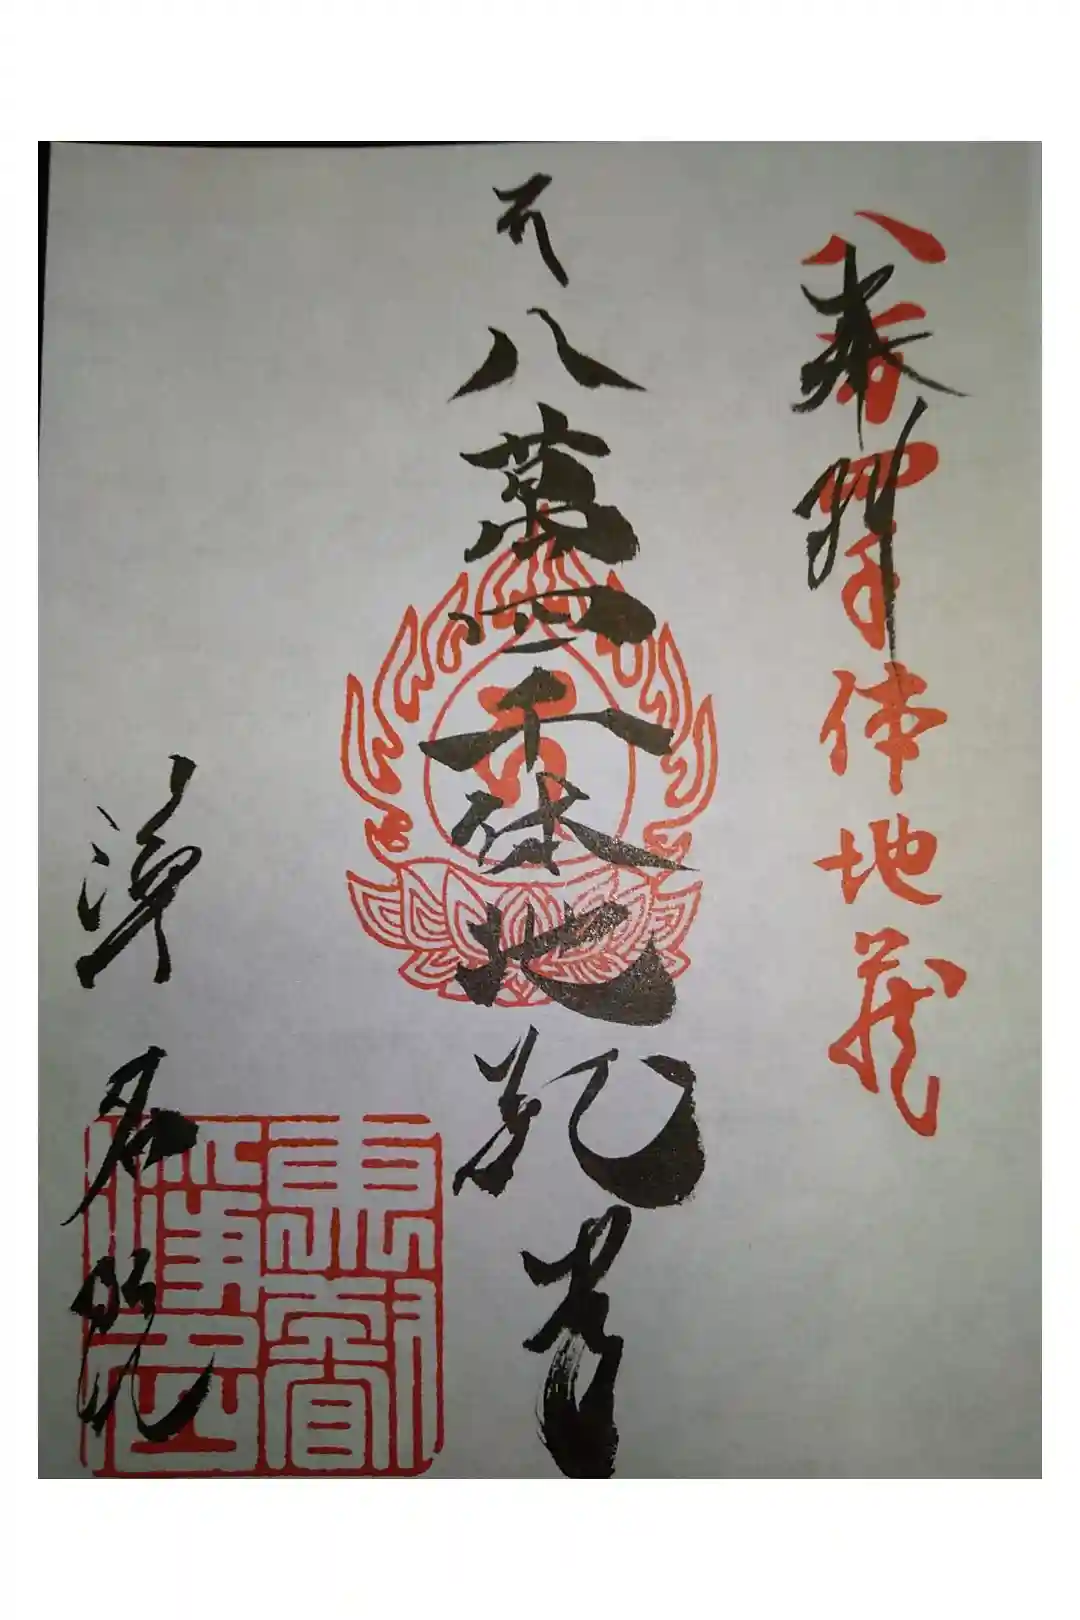 奉拝
八万四千体地蔵
八萬四千体地蔵尊
浄名院